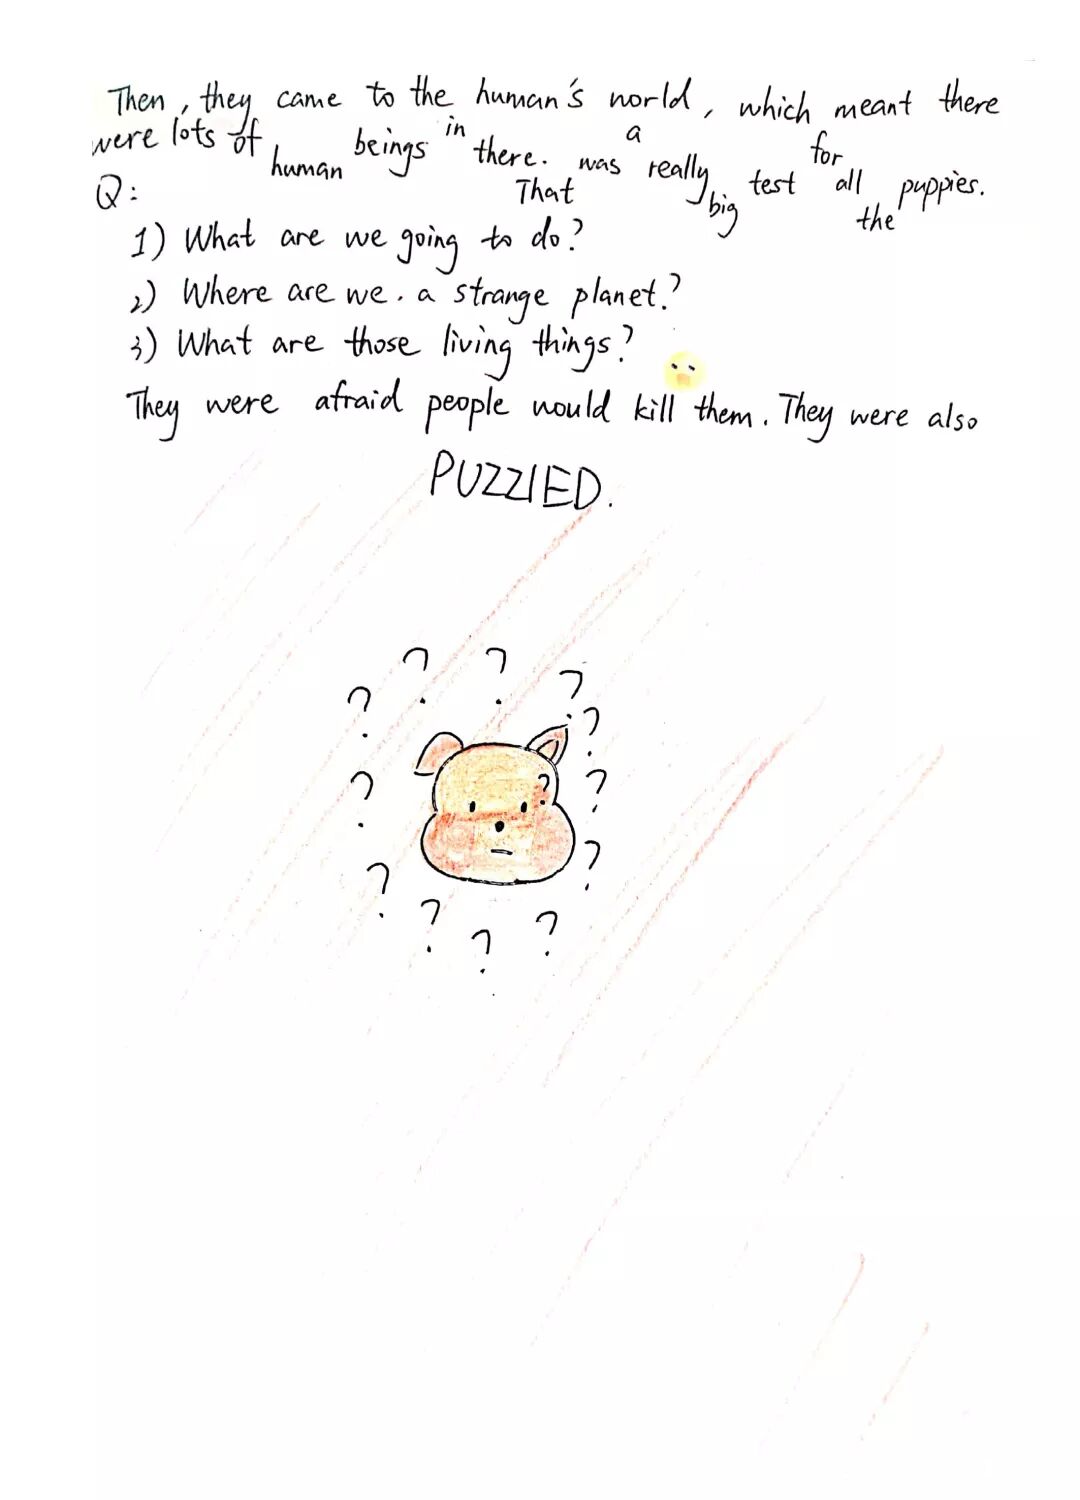 Then, they came to the human's world, which meant there
were lots of human beings in there. That was a really big test for all the puppies.
Q:
1) What are we going to do?
2) Where are we. a strange planet?
3) What are those living things?
They were afraid people would kill them. They were also
PUZZlED.
? ? ? ? ? ? ? ? ? ? ? ? ? ?